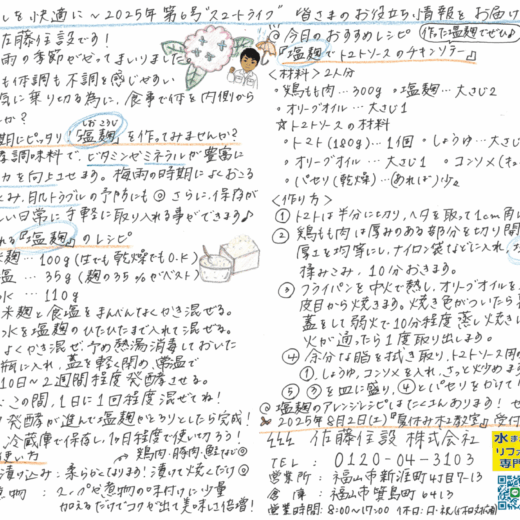 しを快適に～2025年第6号"スマートライフ" 皆さまのお役立ち情報をお届け
佐藤住設です！
雨の季節がやってまいりました。
も体調も不調を感じやすい
気に乗り切る為に、食事で体を内側から
か？
期にピッタリ！「塩麹」を作ってみませんか？
しおこうじ
調味料で、ビタミンやミネラルが豊富に
力を向上させます。梅雨の時期によくおこる
み、肌トラブルの予防にも◎さらに、保存が
しい日常に手軽に取り入れる事ができます♪
れる『塩麹』のレシピ
米麹…100g(生でも乾燥でもO.K)
塩…35g(麹の35%がベスト)
水…110g
米麹と食塩をまんべんなくかき混ぜる。
水を塩麹のひたひたまで入れて混ぜる。
よくかき混ぜ、
の熱湯消毒しておいた
瓶に入れ、蓋を軽く閉め、常温で
10日～2週間程度発酵させる。
この間、1日に1回程度混ぜてね！
発酵が進んで塩麹がとろりとしたら完成！
冷蔵庫で保存し、1カ月程度で使い切ろう！
使い方
鶏肉・豚肉・鮭など◎
漬け込み：柔らかくなります！漬けて焼くだけ◎
煮物：スープや煮物の味付けに少量
加えるだけでコクが出て美味しさ倍増！
◎今日のおすすめレシピ 作った塩麹でぜひ♪
『塩麹でトマトソースのチキンソテー』
<材料>2人分
・鶏もも肉…300g ・塩麹…大さじ2
・オリーブオイル…大さじ1
☆トマトソースの材料
・トマト(180g)…1個 ・しょうゆ…大さじ
・オリーブオイル…大さじ1 ・コンソメ(
・パセリ(乾燥)…(あれば)少々
<作り方>
①トマトは半分に切り、ヘタを取って1cm角に
②鶏もも肉は厚みのある部分を切り開
厚さを均等にし、ナイロン袋などに入れ、塩
揉みこみ、10分おきます。
③フライパンを中火で熱し、オリーブオイルを
皮目から焼きます。焼き色がついたら
蓋をして弱火で10分程度蒸し焼きし
火が通ったら1度取り出します。
④余分な脂を拭き取り、トマトソース用の
①、しょうゆ、コンソメを入れ、さっと炒めます
⑤③を皿に盛り、④とパセリをかけて
◎塩麹のアレンジレシピはたくさんあります！
2025年8月2日(土)『夏休み木工教室』受付
佐藤住設株式会社
TEL：0120-04-3103
営業所：福山市新涯町4丁目7-13
倉庫：福山市箕島町6413
営業時間：8:00～17:00 休日：日・祝
水ま
リフォ
専門